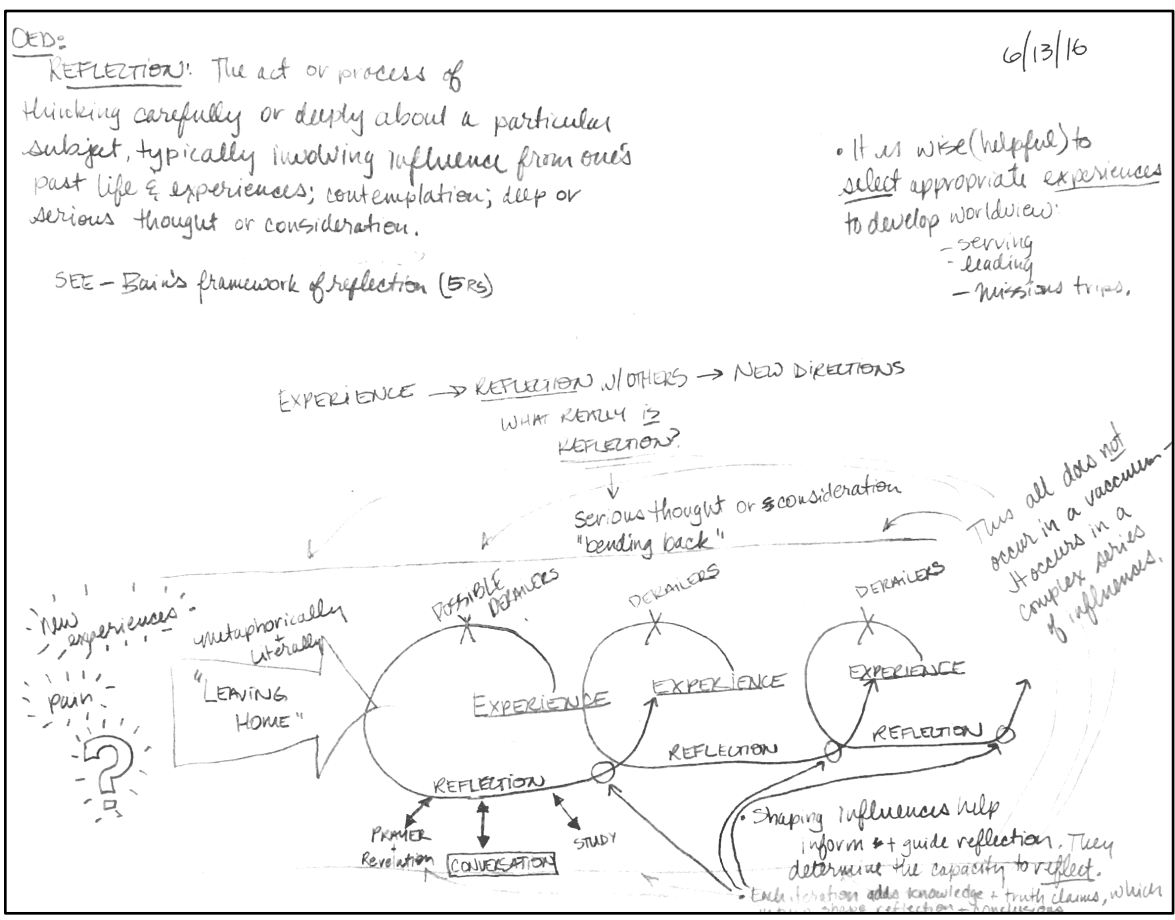 OED:
6/13/16
REFLECTION: The act or process of
thinking carefully or deeply about a particular
subject, typically involving influence from one's
past life & experiences; contemplation; deep or
serious thought or consideration.
SEE – Bain's framework of reflection (5 RS)
• It is wise (helpful) to
select appropriate experiences
to develop worldview:
- serving
- leading
- missions trips.
EXPERIENCE → REFLECTION W/OTHERS → NEW DIRECTIONS
WHAT REALLY IS
REFLECTION?
Serious thought or consideration
"bending back"
This all does not
occur in a vacculum –
It occurs in a
complex series
of influences.
New
experiences
pain
?
Metaphorically
+
Literally
"LEAVING
HOME"
POSSIBLE
DERAILERS
DERAILERS
DERAILERS
EXPERIENCE
EXPERIENCE
EXPERIENCE
REFLECTION
REFLECTION
REFLECTION
PRAYER
+
Revelation
CONVERSATION
STUDY
• Shaping influences help
inform + guide reflection. They
determine the capacity to reflect.
• Each iteration adds knowledge + truth claims, which
shape reflection + conclusions